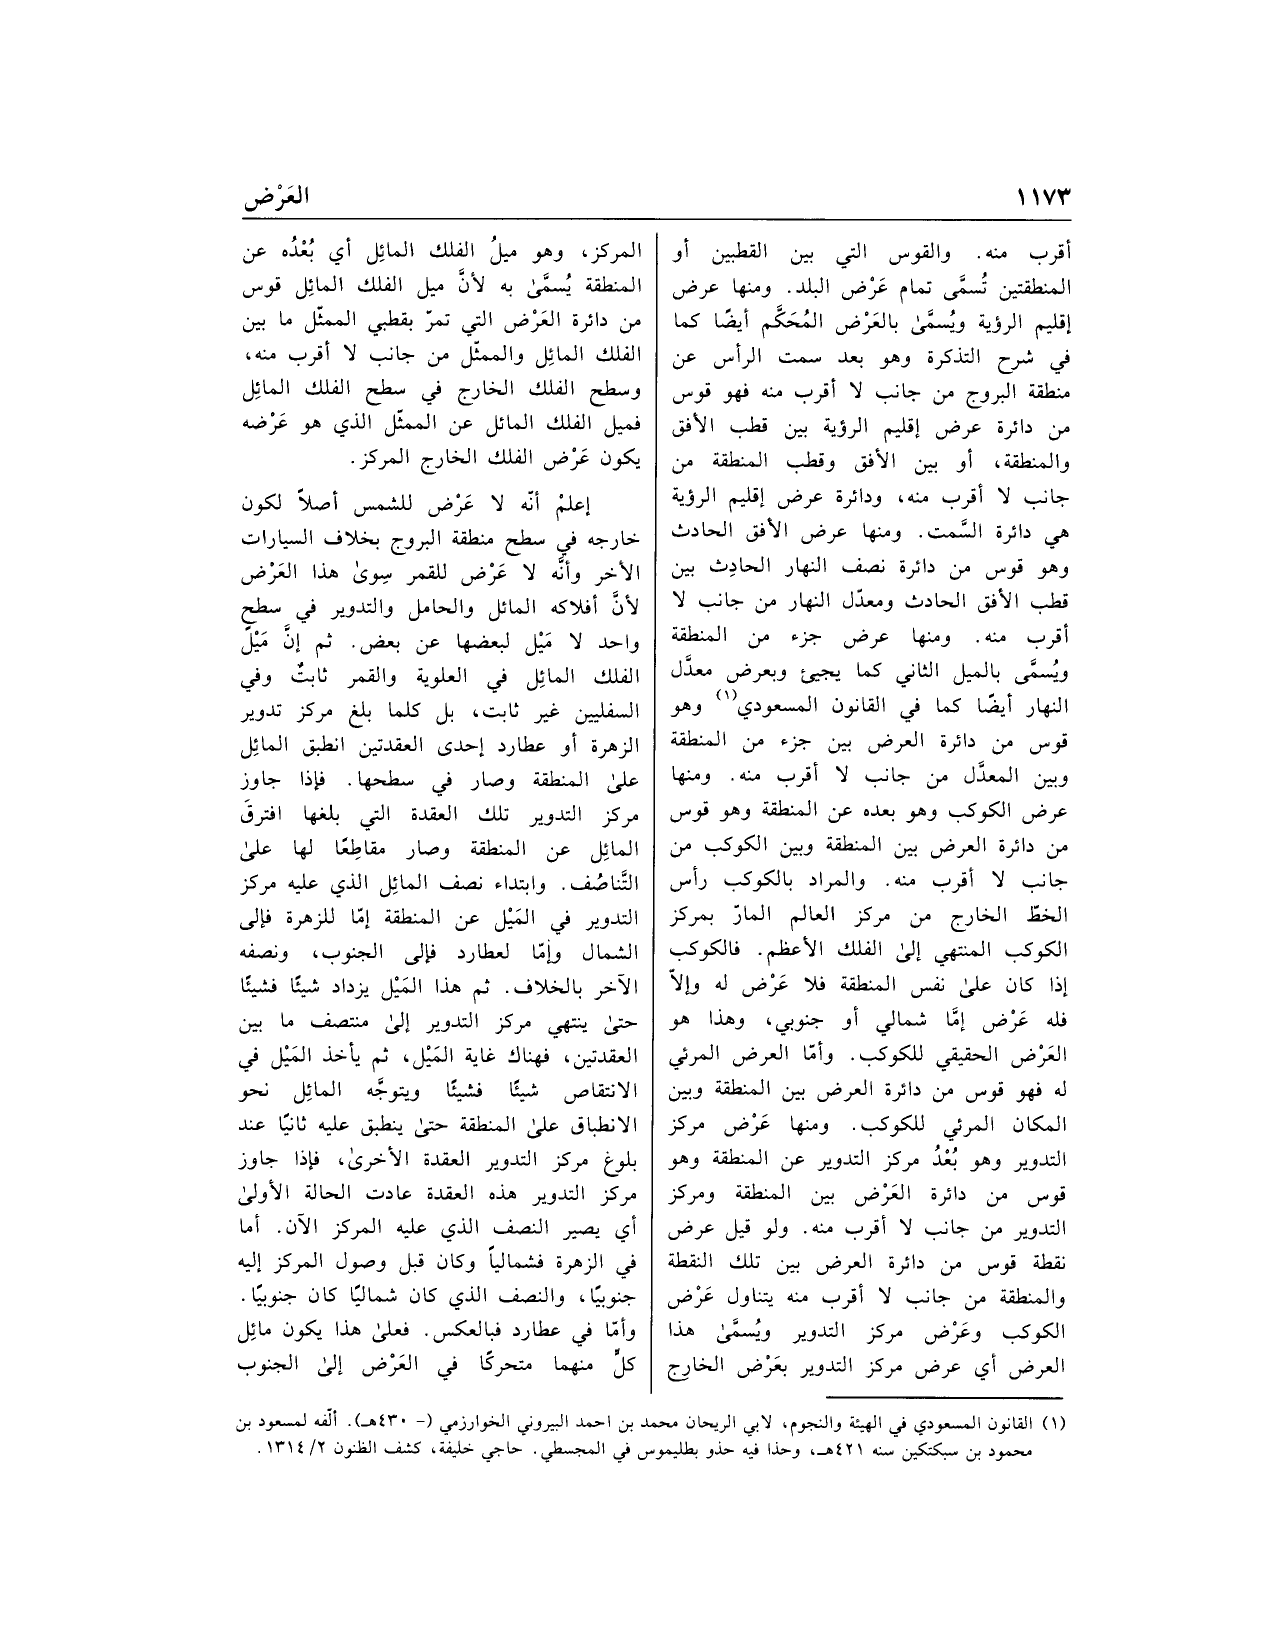 ١١٧٣
العَرْض
أقرب منه. والقوس التي بين القطبين أو
المنطقتين تُسمَّى تمام عَرْض البلد. ومنها عرض
إقليم الرؤية ويُسمَّىٰ بالعَرْض المُحَكَّم أيضًا كما
في شرح التذكرة وهو بعد سمت الرأس عن
منطقة البروج من جانب لا أقرب منه فهو قوس
من دائرة عرض إقليم الرؤية بين قطب الأفق
والمنطقة، أو بين الأفق وقطب المنطقة من
جانب لا أقرب منه، ودائرة عرض إقليم الرؤية
هي دائرة السَّمت. ومنها عرض الأفق الحادث
وهو قوس من دائرة نصف النهار الحادِث بين
قطب الأفق الحادث ومعدّل النهار من جانب لا
أقرب منه. ومنها عرض جزء من المنطقة
ويُسمَّى بالميل الثاني كما يجيئ وبعرض معدَّل
النهار أيضًا كما في القانون المسعودي(١) وهو
قوس من دائرة العرض بين جزء من المنطقة
وبين المعدَّل من جانب لا أقرب منه. ومنها
عرض الكوكب وهو بعده عن المنطقة وهو قوس
من دائرة العرض بين المنطقة وبين الكوكب من
جانب لا أقرب منه. والمراد بالكوكب رأس
الخطّ الخارج من مركز العالم المارّ بمركز
الكوكب المنتهي إلىٰ الفلك الأعظم. فالكوكب
إذا كان علىٰ نفس المنطقة فلا عَرْض له وإلاّ
فله عَرْض إمَّا شمالي أو جنوبي، وهذا هو
العَرْض الحقيقي للكوكب. وأمّا العرض المرئي
له فهو قوس من دائرة العرض بين المنطقة وبين
المكان المرئي للكوكب. ومنها عَرْض مركز
التدوير وهو بُعْدُ مركز التدوير عن المنطقة وهو
قوس من دائرة العَرْض بين المنطقة ومركز
التدوير من جانب لا أقرب منه. ولو قيل عرض
نقطة قوس من دائرة العرض بين تلك النقطة
والمنطقة من جانب لا أقرب منه يتناول عَرْض
الكوكب وعَرْض مركز التدوير ويُسمَّىٰ هذا
العرض أي عرض مركز التدوير بعَرْض الخارِج
المركز، وهو ميلُ الفلك المائِل أي بُعْدُه عن
المنطقة يُسمَّىٰ به لأنَّ ميل الفلك المائِل قوس
من دائرة العَرْض التي تمرّ بقطبي الممثّل ما بين
الفلك المائل والممثّل من جانب لا أقرب منه،
وسطح الفلك الخارج في سطح الفلك المائِل
فميل الفلك المائل عن الممثّل الذي هو عَرْضه
يكون عَرْض الفلك الخارج المركز.
إعلمْ أنّه لا عَرْض للشمس أصلاً لكون
خارجه في سطح منطقة البروج بخلاف السيارات
الأخر وأنَّه لا عَرْض للقمر سِوىٰ هذا العَرْض
لأنَّ أفلاكه المائل والحامل والتدوير في سطح
واحد لا مَيْل لبعضها عن بعض. ثم إنَّ مَيْلَ
الفلك المائِل في العلوية والقمر ثابتٌ وفي
السفليين غير ثابت، بل كلما بلغ مركز تدوير
الزهرة أو عطارد إحدى العقدتين انطبق المائِل
علىٰ المنطقة وصار في سطحها. فإذا جاوز
مركز التدوير تلك العقدة التي بلغها افترقَ
المائِل عن المنطقة وصار مقاطِعًا لها علىٰ
التَّناصُف. وابتداء نصف المائِل الذي عليه مركز
التدوير في المَيْل عن المنطقة إمّا للزهرة فإلى
الشمال وإمّا لعطارد فإلى الجنوب، ونصفه
الآخر بالخلاف. ثم هذا المَيْل يزداد شيئًا فشيئًا
حتىٰ ينتهي مركز التدوير إلىٰ منتصف ما بين
العقدتين، فهناك غاية المَيْل، ثم يأخذ المَيْل في
الانتقاص شيئًا فشيئًا ويتوجَّه المائِل نحو
الانطباق علىٰ المنطقة حتىٰ ينطبق عليه ثانيًا عند
بلوغ مركز التدوير العقدة الأخرىٰ، فإذا جاوز
مركز التدوير هذه العقدة عادت الحالة الأولىٰ
أي يصير النصف الذي عليه المركز الآن. أما
في الزهرة فشمالياً وكان قبل وصول المركز إليه
جنوبيًا، والنصف الذي كان شماليًا كان جنوبيًا.
وأمّا في عطارد فبالعكس. فعلىٰ هذا يكون مائِل
كلٍّ منهما متحركًا في العَرْض إلىٰ الجنوب
(١) القانون المسعودي في الهيئة والنجوم، لابي الريحان محمد بن احمد البيروني الخوارزمي (- ٤٣٠هـ). ألّفه لمسعود بن
محمود بن سبكتكين سنه ٤٢١هـ، وحذا فيه حذو بطليموس في المجسطي. حاجي خليفة، كشف الظنون ٢/ ١٣١٤.